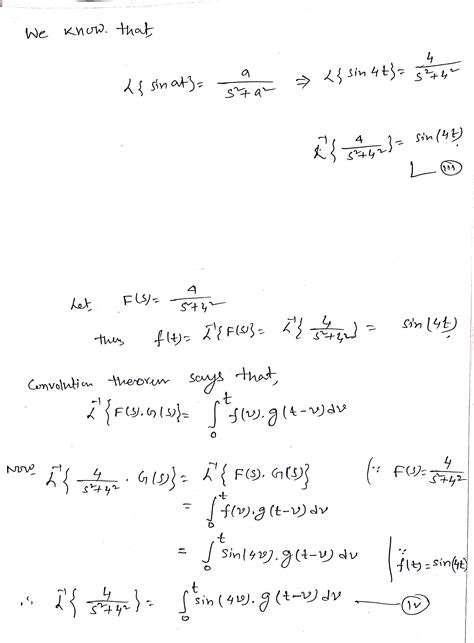 We know that,
L{sin at} = a/(s²+a²) ⇒ L{sin 4t} = 4/(s²+4²)
L⁻¹{4/(s²+4²)} = sin(4t)
(iii)
Let, F(s) = 4/(s²+4²)
thus f(t) = L⁻¹{F(s)} = L⁻¹{4/(s²+4²)} = sin(4t).
Convolution theorem says that,
L⁻¹{F(s).G(s)} = ∫₀ᵗ f(v).g(t-v)dv
Now L⁻¹{4/(s²+4²) . G(s)} = L⁻¹{F(s).G(s)} (∵ F(s) = 4/(s²+4²)
= ∫₀ᵗ f(v).g(t-v)dv
= ∫₀ᵗ sin(4v).g(t-v)dv | ∵ f(t) = sin(4t)
∴ L⁻¹{4/(s²+4²)} = ∫₀ᵗ sin(4v).g(t-v)dv — (iv)